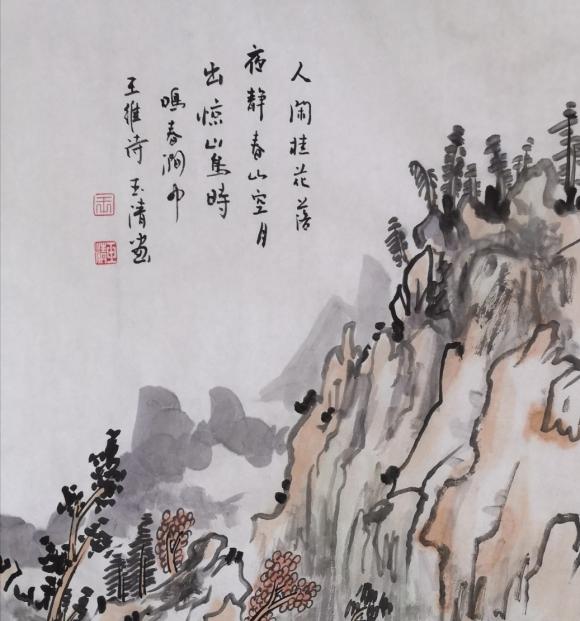 人闲桂花落
夜静春山空月
出惊山鸟時
鳴春涧中
王維诗 玉清画